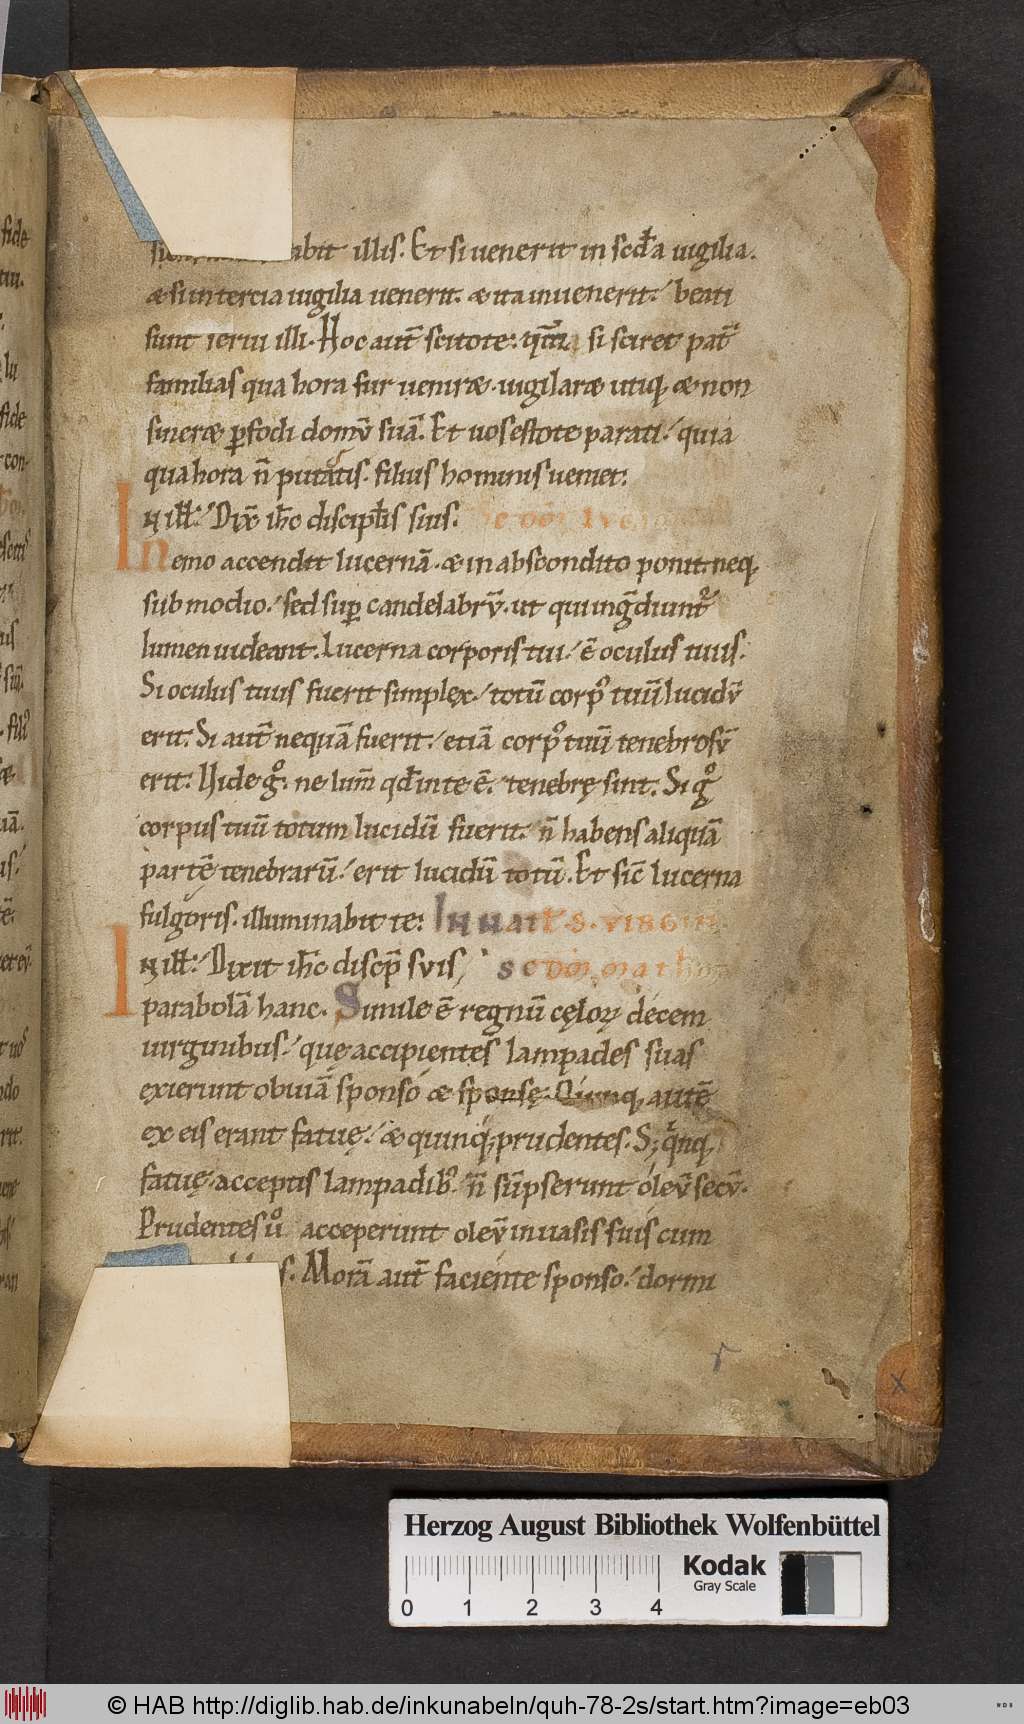 abit illis. Et si uenerit in scđa uigilia.
& si in tercia uigilia uenerit. & ita inuenerit. beati
sunt serui illi. Hoc aut̄ scitote. qm̄ si sciret pat̄
familias qua hora fur uenir&. uigilar& utiq; & non
siner& ꝑfodi domū suā. Et uos estote parati. quia
qua hora n̄ putatis. filius hominis ueniet.
In ill. Dix̄ ih̄c discipl̄is suis. Sc̄ dm̄
Nemo accendit lucernā. & in abscondito ponit neq;
sub modio. sed suꝑ candelabrū. ut qui ingᵃdiunt̄
lumen uideant. Lucerna corporis tui. ē oculus tuus.
Si oculus tuus fuerit simplex. totū corpꝰ tuū lucidū
erit. Si aut̄ nequā fuerit. etiā corpꝰ tuū tenebrosū
erit. Uide gᵒ. ne lum̄ qđ in te ē. tenebrę sint. Si gᵒ
corpus tuū totum lucidū fuerit. n̄ habens aliquā
partē tenebrarū. erit lucidū totū. Et sic̄ lucerna
fulgoris. illuminabit te. In nat. S. virgin
In ill. Dixit ih̄c discip̄ suis
parabolā hanc. Simile ē regnū cęloꝝ decem
uirginibus. quę accipientes lampades suas
exierunt obuiā sponso & sponsę. Quinq; autē
ex eis erant fatuę. & quinq; prudentes. S; qⁱnq;
fatuę. acceptis lampadibꝰ. n̄ sūpserunt oleū secū.
Prudentes uᵒ acceperunt oleū in uasis suis cum
Morā aut̄ faciente sponso. dormi
x
Herzog August Bibliothek Wolfenbüttel
Kodak
Gray Scale
0 1 2 3 4
© HAB http://diglib.hab.de/inkunabeln/quh-78-2s/start.htm?image=eb03